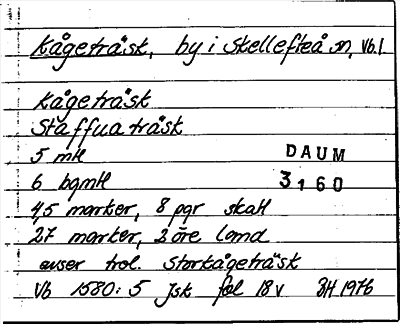 Kågeträsk, by i Skellefteå sn, Vb.l
Kågeträsk
Staffua träsk
5 mtl
DAUM
6 bgmtl
3160
4,5 marker, 8 pgr skatt
27 marker, 2 öre land
avser trol. Storkågeträsk
Vb 1580: 5 Jsk fol 18 v BH 1976